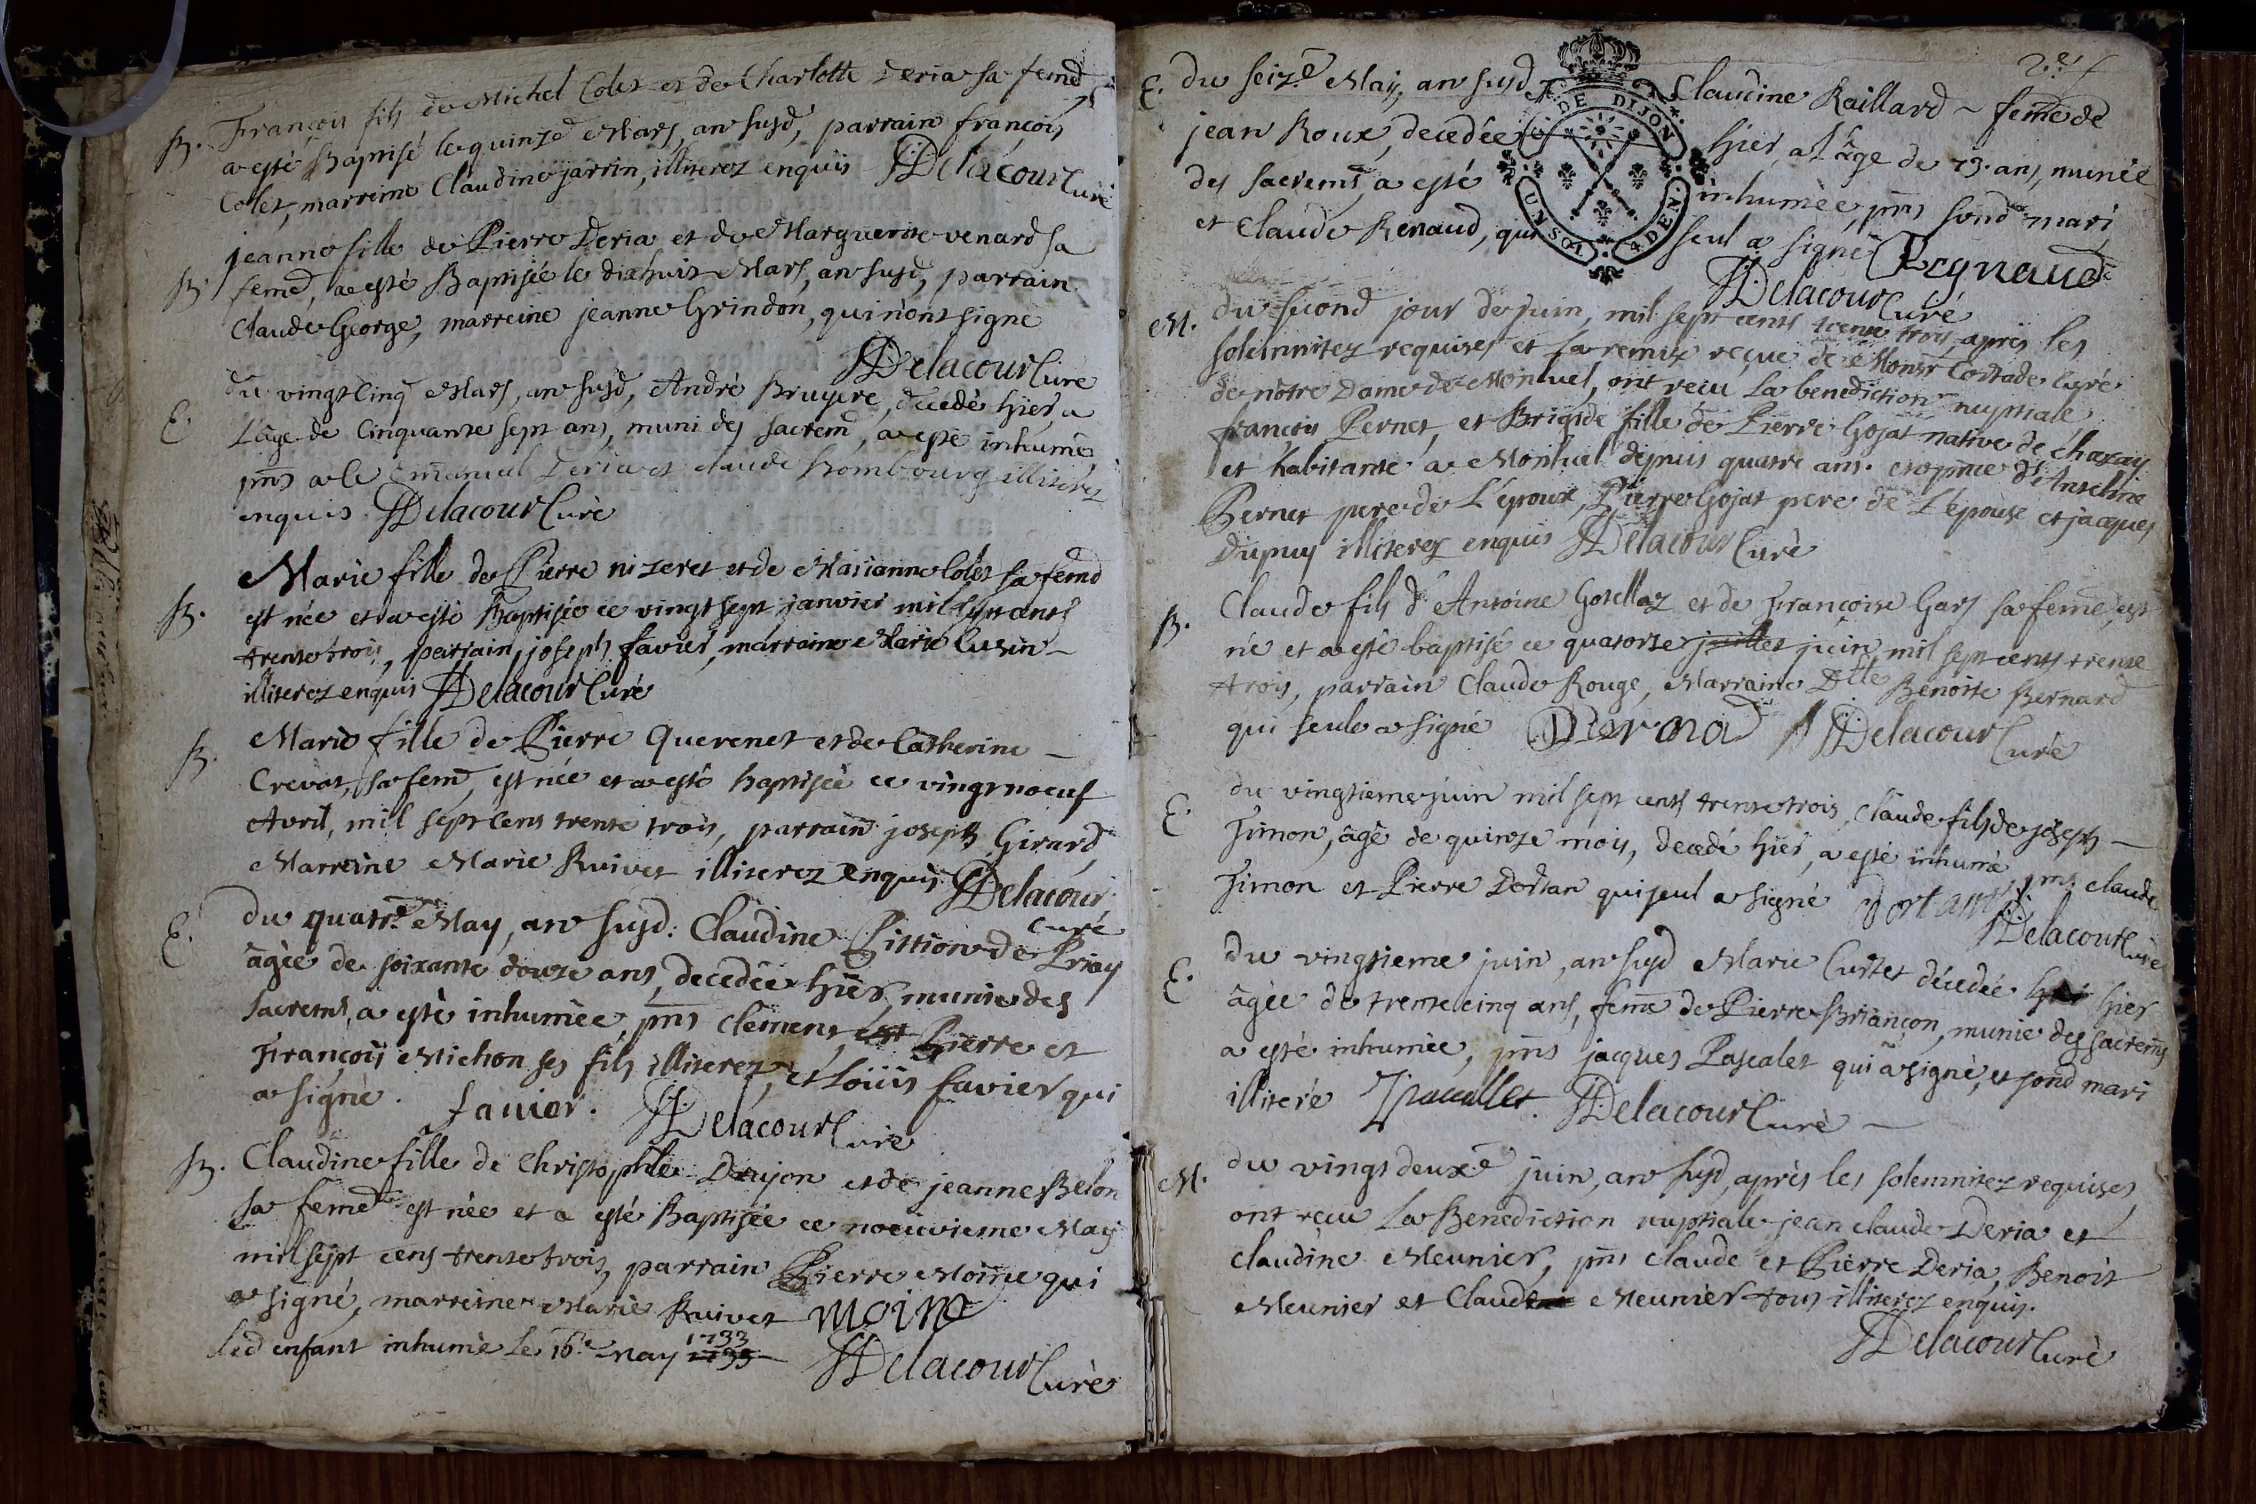 B. François fils de Michel Colet et de Charlotte Deria sa feme
a esté Baptisé le quinze Mars, an susd, parrain françois
Colet, marreine Claudine jarrin, illiterez enquis Delacour Curé
jeanne fille de Pierre Deria et de Marguerite venard sa
B. feme, a esté Baptisée le dixhuit Mars, an susd, parrain
Claude George, marreine jeanne Grindon, qui n'ont signé
Delacour Curé
du vingt Cinq Mars, an susd, André Bruyere, decedé hier, a
E. L'âge de Cinquante sept ans, muni des sacrem, a esté inhumé
pns Emanuel Deria et claude Rombourg illiterez
enquis Delacour Curé
Marie fille de Pierre nizeret et de Marianne Colet sa feme
B. est née et a esté Baptisée ce vingt sept janvier mil sept cents
trente trois, parrain joseph favier, marraine Marie Cusin
illiterez enquis Delacour Curé
B. Marie fille de Pierre Querenet et de Catherine
Crevat, sa feme, est née et a esté baptisée ce vingt noeuf
Avril, mil sept cens trente trois, parrain joseph Girard,
Marreine Marie Ruivet illiterez enquis Delacour
Curé
E. du quatre May, an susd. Claudine Pittion de Priay
âgée de soixante douze ans, decedée hier, munie des
sacremts, a esté inhumée, pns clement, Pierre et
François Michon ses fils illiterez, et Loüis favier qui
a signé. favier. Delacour Curé
B. Claudine fille de Christophle Drujon et de jeanne Belon
sa feme est née et a esté Baptisée ce noeuvieme May
mil sept cens trente trois, parrain Pierre Moine qui
a signé, marreine Marie Ruivet moine
led enfant inhumé le 16e May 1733
Delacour Curé
2e f
E. du seize May, an susd Claudine Raillard feme de
GEN. DE DIJON
jean Roux, decedée hier, a l'âge de 73. ans, munie
des sacremts, a esté inhumée, pns sond mari
et Claude Renaud, qui seul a signé Regnaud
UN SOL 4 DEN.
Delacour Curé
M. du second jour de juin, mil sept cents trente trois, après les
solemnitez requises et la remise reçue de Monsr Costade Curé
de nôtre Dame de Monluel, ont recu la benediction nuptiale,
françois Pernet, et Brigide fille de Pierre Gojat native de charay
et habitante a Monluel depuis quatre ans. d'Anselme
Pernet pere de L'epoux, Pierre Gojat pere de L'epouse et jacques
Dupuy illiterez enquis Delacour Curé
Claude fils d'Antoine Gotellaz et de Françoise Gars sa feme, est
B. né et a esté baptisé ce quatorze juillet juin, mil sept cents trente
trois, parrain Claude Rouge, Marraine Dlle Benoite Bernard
qui seule a signé Bernad Delacour Curé
du vingtieme juin mil sept cents trente trois, Claude fils de joseph
E. Timon, âgé de quinze mois, decedé hier, a esté inhumé pns claude
Timon et Pierre Dortan qui seul a signé Dortan
Delacour Curé
E. du vingtieme juin, an susd Marie Curtet décedée hier
âgée de trente cinq ans, feme de Pierre Briançon, munie des sacremts
a esté inhumée, pns jacques Pascalet qui a signé, et sond mari
illiteré Jpascallet. Delacour Curé
M. du vingt deuxe juin, an susd, après les solemnitez requises
ont reçu La Benediction nuptiale jean claude Deria et
claudine Meunier, pns Claude et Pierre Deria, Benoit
Meunier et Claude Meunier tous illiterez enquis.
Delacour Curé